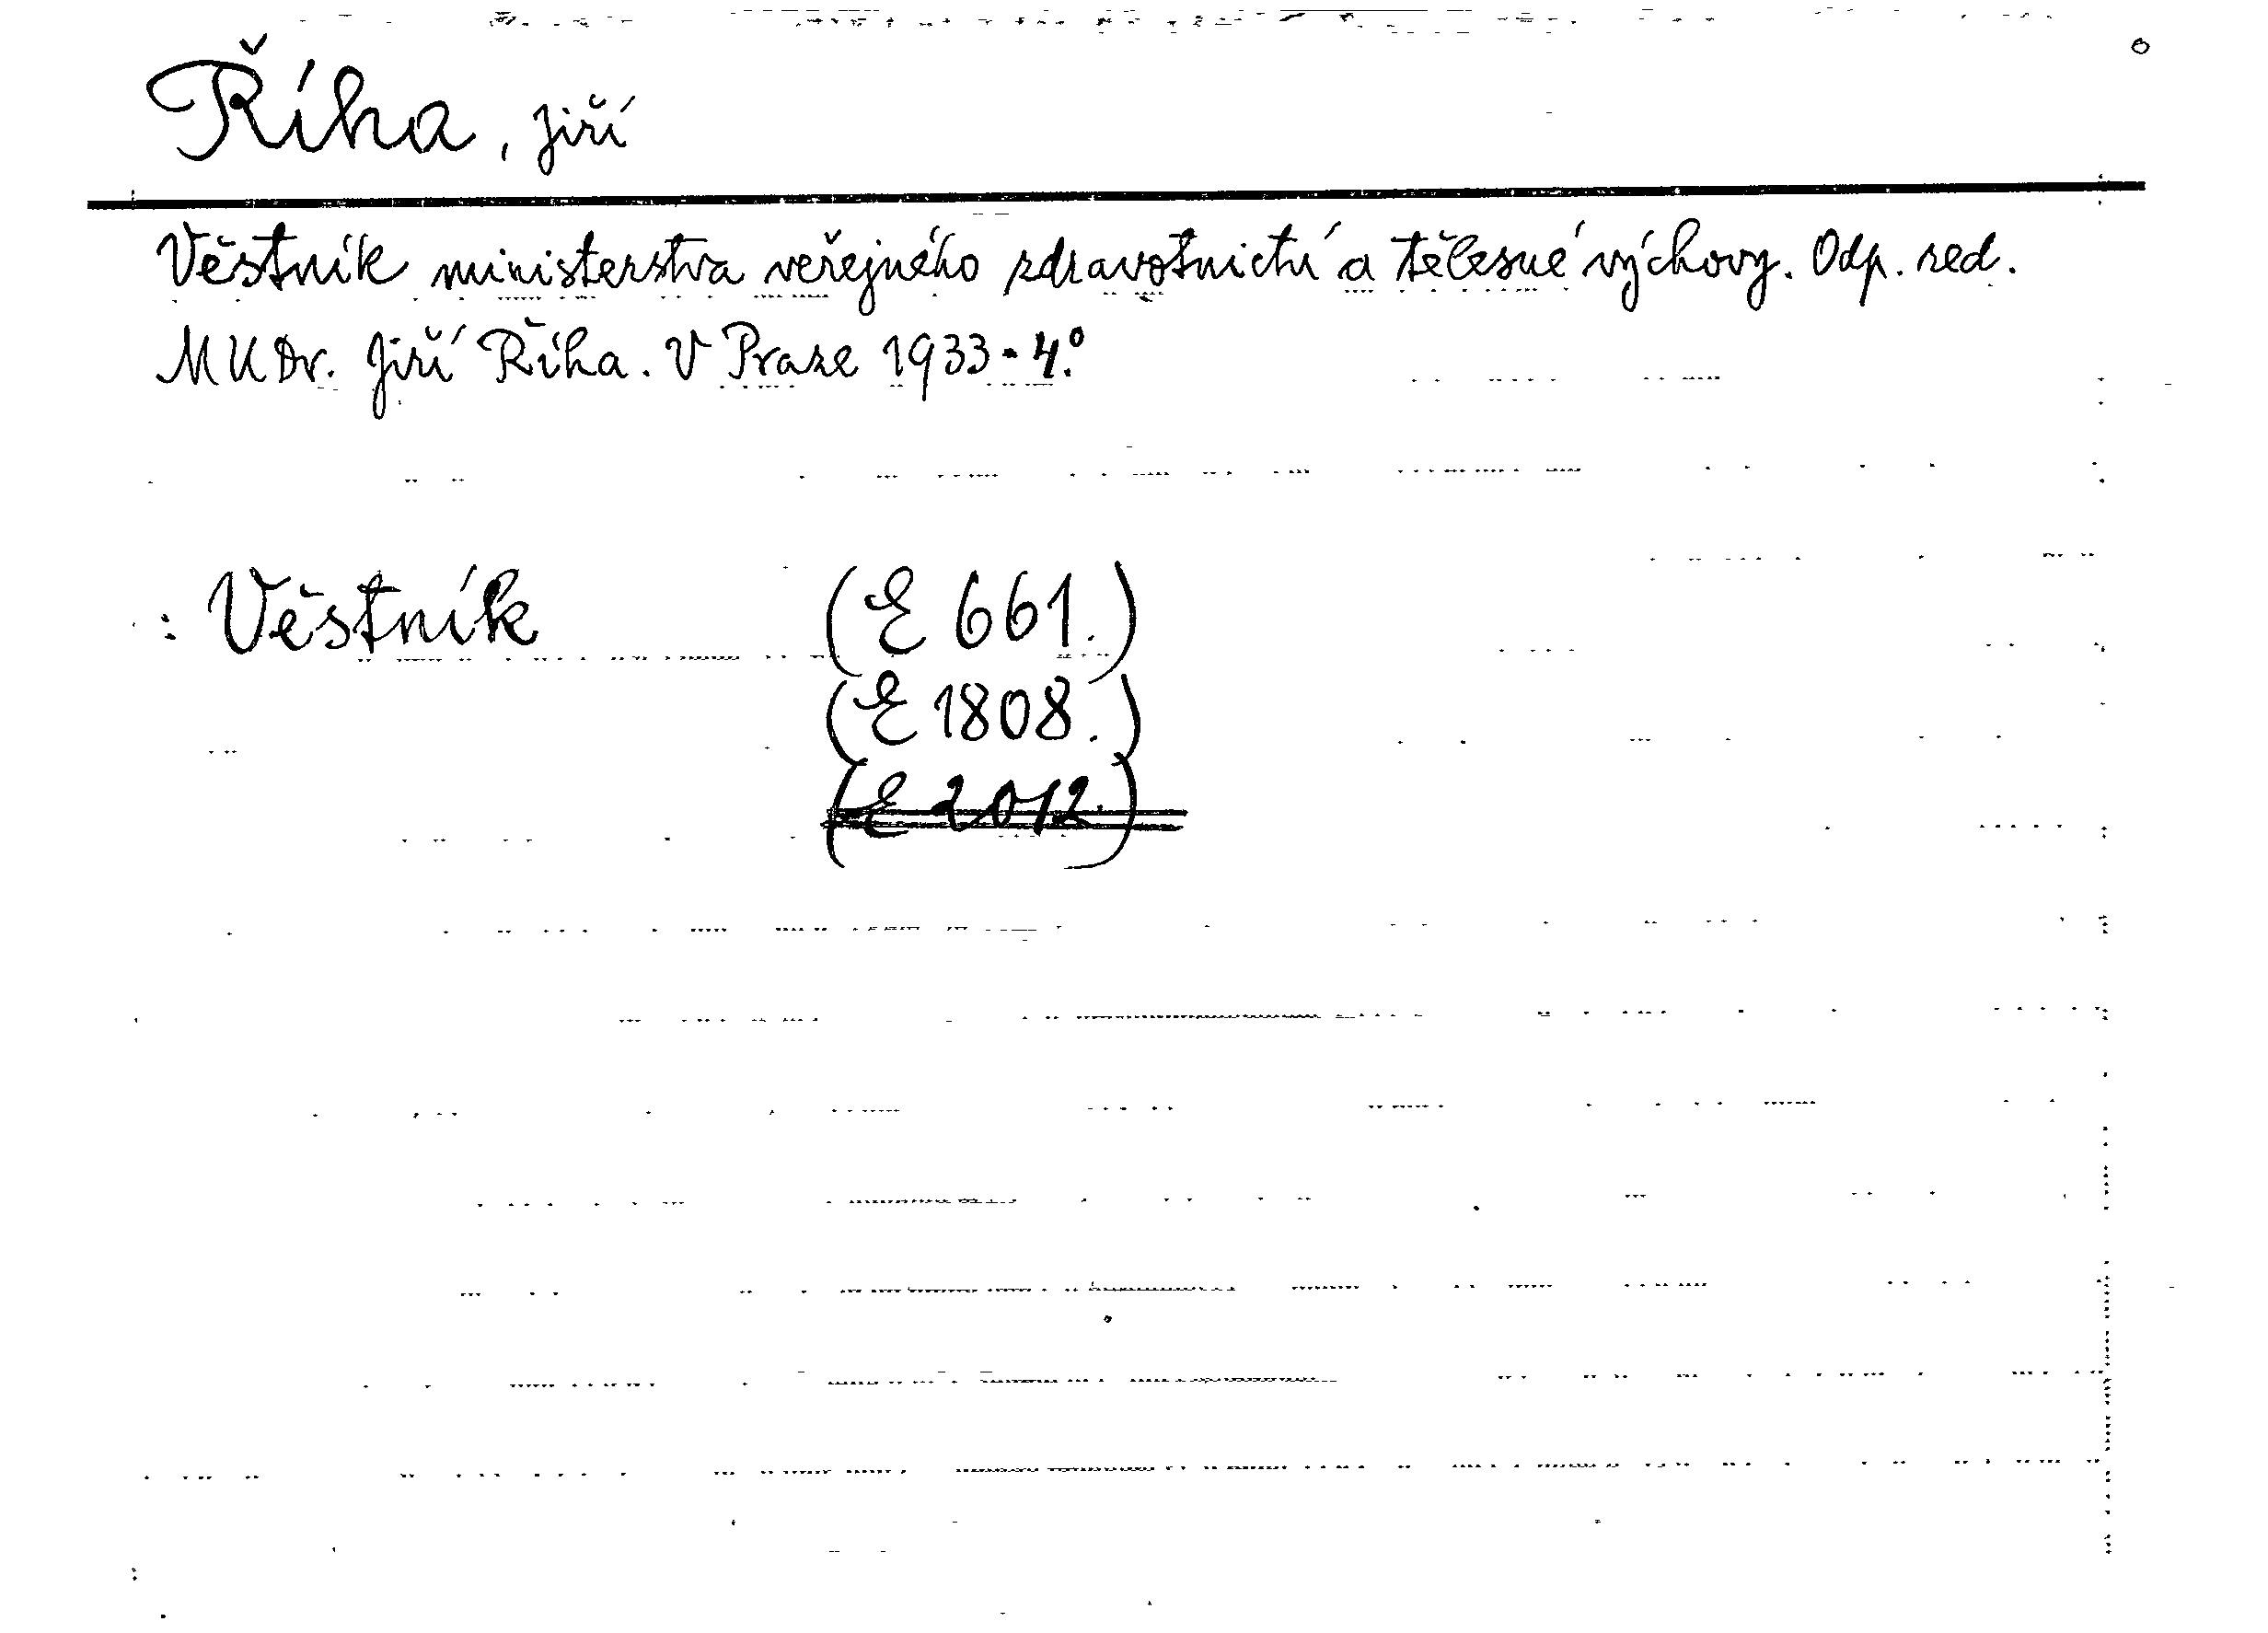 Říha, Jiří
Věstník ministerstva veřejného zdravotnictví a tělesné výchovy. Odp. red.
MUDr. Jiří Říha. V Praze 1933 - 4.°
: Věstník (E 661.)
(E 1808.)
(E 2012.)